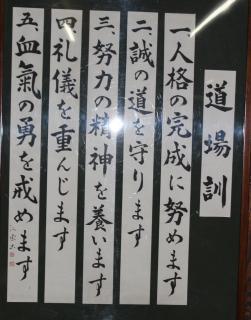 道場訓
一、人格の完成に努めます
二、誠の道を守ります
三、努力の精神を養います
四、礼儀を重んじます
五、血氣の勇を戒めます